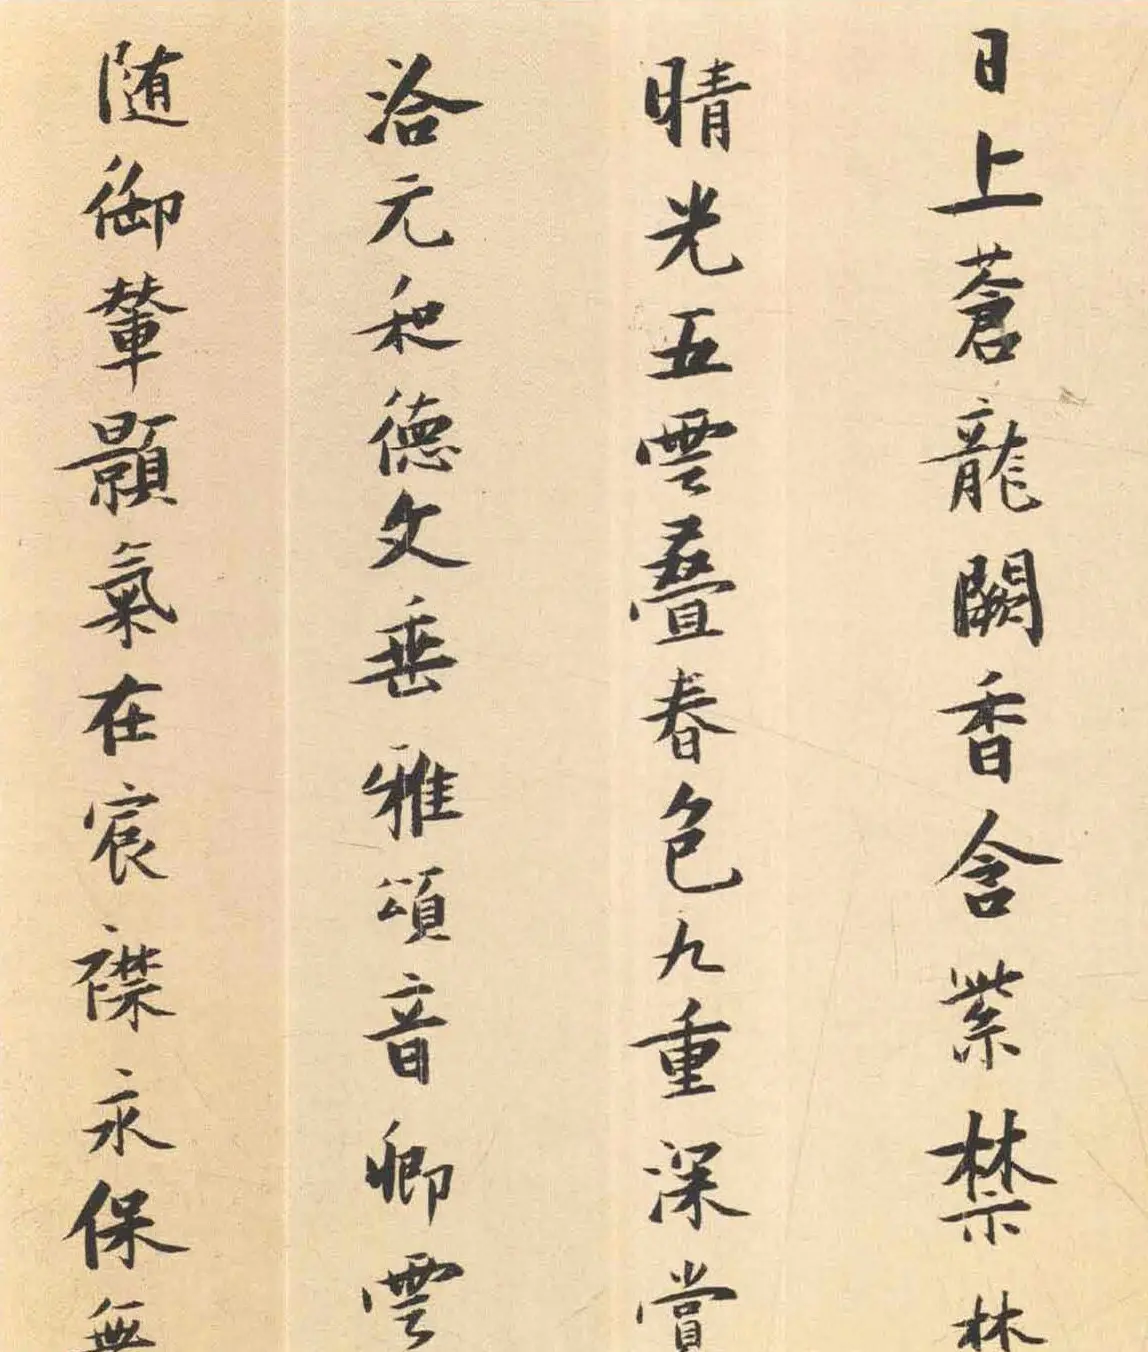 日上蒼龍闕香含紫禁林
晴光五雲疊春色九重深賞
洽元和德文垂雅頌音卿雲
随御輦顥氣在宸襟永保無